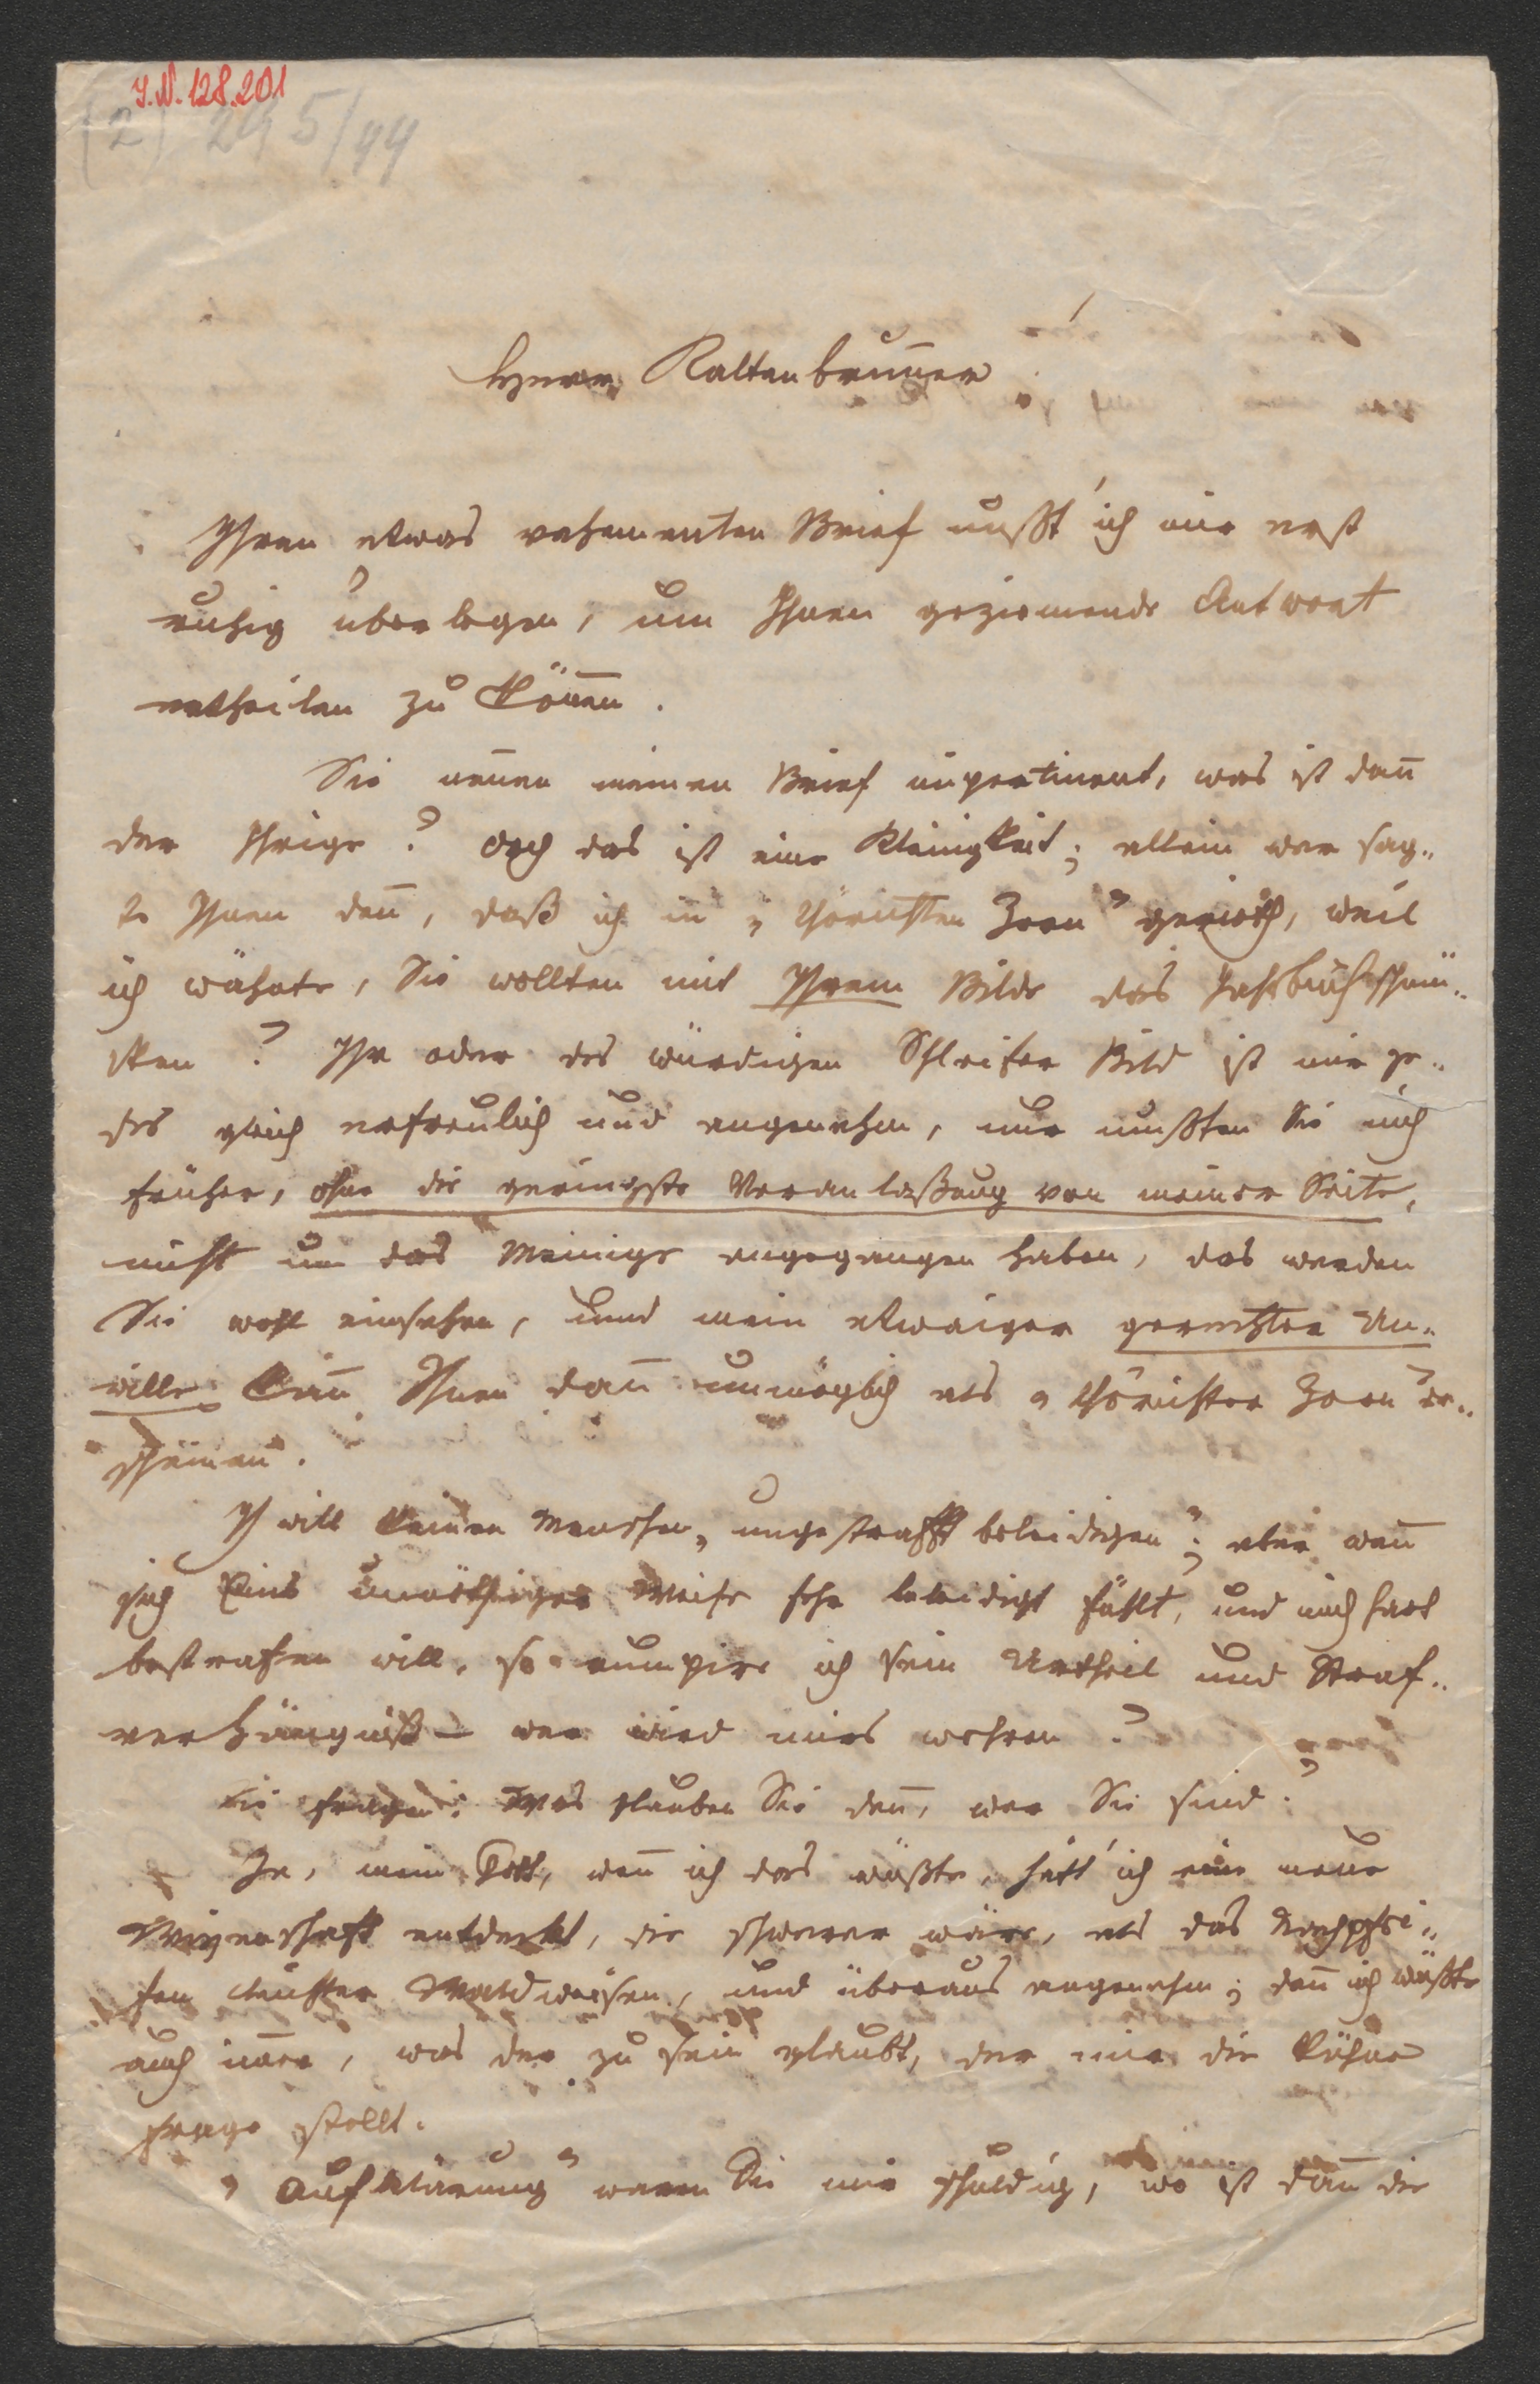 I.N. 128.201
(2) 295/99
Herrn Kaltenbrunner!
Ihren etwas vehementen Brief mußt' ich mir erst
ruhig überlegen, um Ihnen geziemende Antwort
ertheilen zu können.
Sie nennen meinen Brief impertinent, was ist dann
der Ihrige? doch das ist eine Kleinigkeit; allein wer sag„
te Ihnen denn, daß ich in „thörichten Zorn" gerieth, weil
ich wähnte, Sie wollten mit Ihrem Bilde das Jahrbuch schmü„
cken? Ihr oder des würdigen Schleifer Bild ist mir je„
des gleich erfreulich und angenehm, nur mußten Sie mich
früher, ohne die geringste Veranlaßung von meiner Seite,
nicht um das Meinige angegangen haben, das werden
Sie wohl einsehen, und mein etwaiger gerechter Un„
wille kann Ihnen dann unmöglich als „thörichter Zorn" er„
scheinen.
Ich will keinen Menschen „ungestrafft beleidigen"; aber wenn
sich Eins unnöthiger Weise sehr beleidigt fühlt, und mich hart
bestrafen will, so rumpire ich sein Urtheil und Straf„
verhängniß – wer wird mirs wehren?
Sie fragen: Was glauben Sie denn, wer Sie sind?
Ja, mein Gott, wenn ich das wüßte, hätt' ich eine neue
Wissenschaft entdeckt, die schwerer wäre, als das
Waldweisen, und überaus angenehm; denn ich wüßte
auch inne, was der zu sein glaubt, der mir die kühne
Frage stellt.
„Aufklärung" waren Sie mir schuldig, wo ist dann die